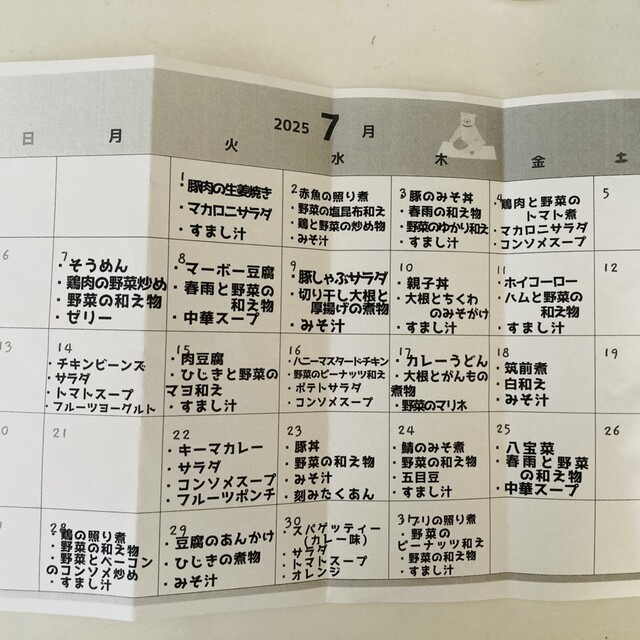 2025 7 月
日 月 火 水 木 金 土
1
・豚肉の生姜焼き
・マカロニサラダ
・すまし汁
2
・赤魚の照り煮
・野菜の塩昆布和え
・鶏と野菜の炒め物
・みそ汁
3
・豚のみそ丼
・春雨の和え物
・野菜のゆかり和え
・すまし汁
4
・鶏肉と野菜の
トマト煮
・マカロニサラダ
・コンソメスープ
5
6
7
・そうめん
・鶏肉の野菜炒め
・野菜の和え物
・ゼリー
8
・マーボー豆腐
・春雨と野菜の
和え物
・中華スープ
9
・豚しゃぶサラダ
・切り干し大根と
厚揚げの煮物
・みそ汁
10
・親子丼
・大根とちくわ
のみそがけ
・すまし汁
11
・ホイコーロー
・ハムと野菜の
和え物
・すまし汁
12
13
14
・チキンビーンズ
・サラダ
・トマトスープ
・フルーツヨーグルト
15
・肉豆腐
・ひじきと野菜の
マヨ和え
・すまし汁
16
・ハニーマスタードチキン
・野菜のピーナッツ和え
・ポテトサラダ
・コンソメスープ
17
・カレーうどん
・大根とがんもの
煮物
・野菜のマリネ
18
・筑前煮
・白和え
・みそ汁
19
0
21
22
・キーマカレー
・サラダ
・コンソメスープ
・フルーツポンチ
23
・豚丼
・野菜の和え物
・みそ汁
・刻みたくあん
24
・鯖のみそ煮
・野菜の和え物
・五目豆
・すまし汁
25
・八宝菜
・春雨と野菜
の和え物
・中華スープ
26
28
・鶏の照り煮
・野菜の和え物
・野菜とベーコン
のコンソメ炒め
・すまし汁
29
・豆腐のあんかけ
・ひじきの煮物
・みそ汁
30
・スパゲッティー
(カレー味)
・サラダ
・トマトスープ
・オレンジ
31
・ブリの照り煮
・野菜の
ピーナッツ和え
・野菜の和え物
・すまし汁